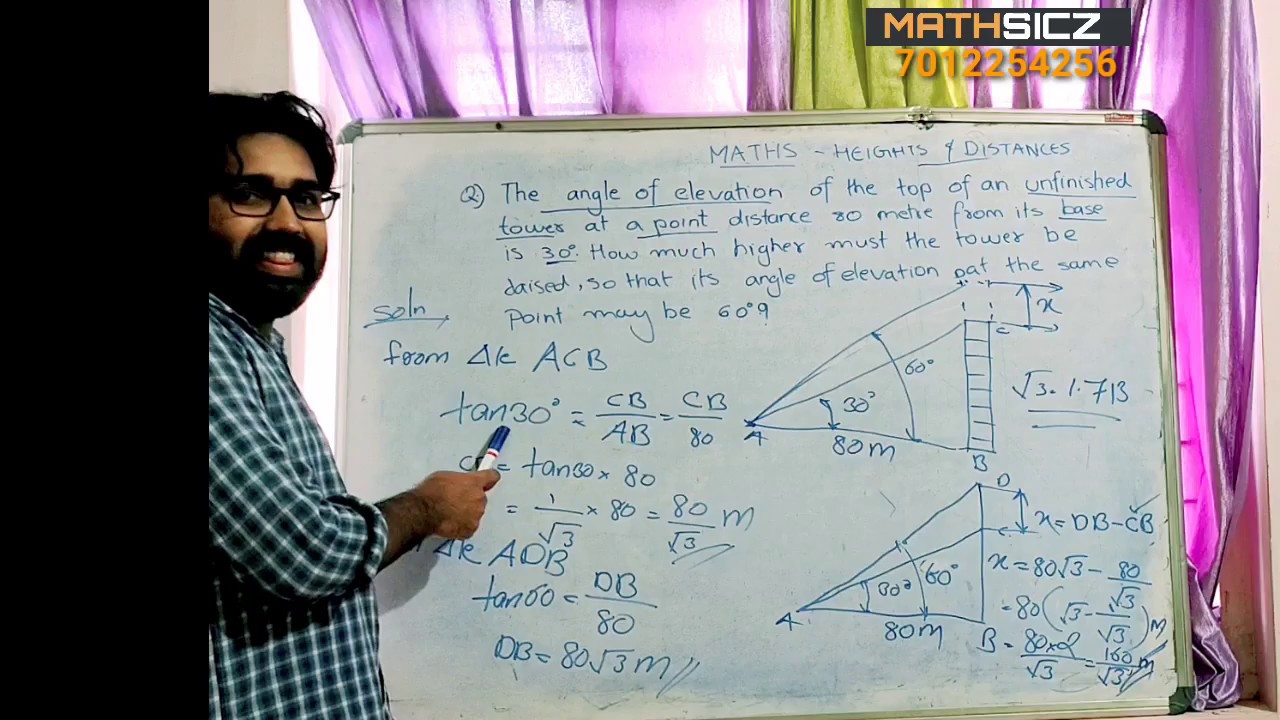 MATHSICZ
7012254256
MATHS - HEIGHTS & DISTANCES
Q) The angle of elevation of the top of an unfinished
tower at a point distance 80 metre from its base
is 30°. How much higher must the tower be
raised, so that its angle of elevation at the same
point may be 60°?
Soln
from Δle ACB
tan30° = CB/AB = CB/80
= tan30 × 80
= 1/√3 × 80 = 80/√3 m
Δle ADB
tan60 = DB/80
DB = 80√3 m
D
x
C
60°
30°
A
80m
B
√3 = 1.73
D
C
x = DB - CB
60°
30°
A
80m
B
x = 80√3 - 80/√3
= 80(√3 - 1/√3) m
= 80×2/√3 = 160/√3 m